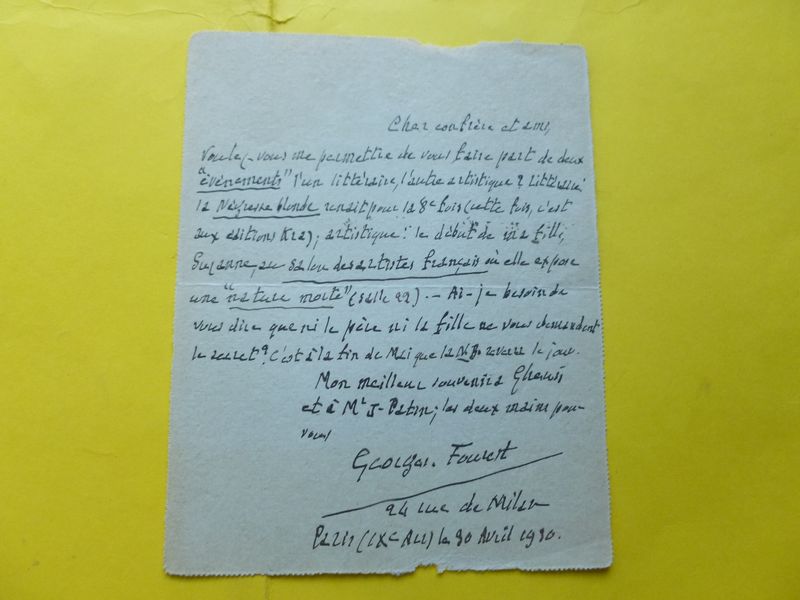 Cher confrère et ami,
Voulez-vous me permettre de vous faire part de deux
"événements" l'un littéraire, l'autre artistique? Littéraire:
la Négresse blonde renait pour la 8e fois (cette fois, c'est
aux éditions Kra); artistique: le début de ma fille,
Suzanne, au salon des artistes français où elle expose
une "nature morte" (salle 22). - Ai-je besoin de
vous dire que ni le père ni la fille ne vous demandent
le secret? C'est à la fin de Mai que la N. B. reverra le jour.
Mon meilleur souvenir à Gheusi
et à Mr J- Patin; les deux mains pour
vous
Georges. Fourest
24 rue de Milan
Paris (IXe Arr) le 30 Avril 1930.